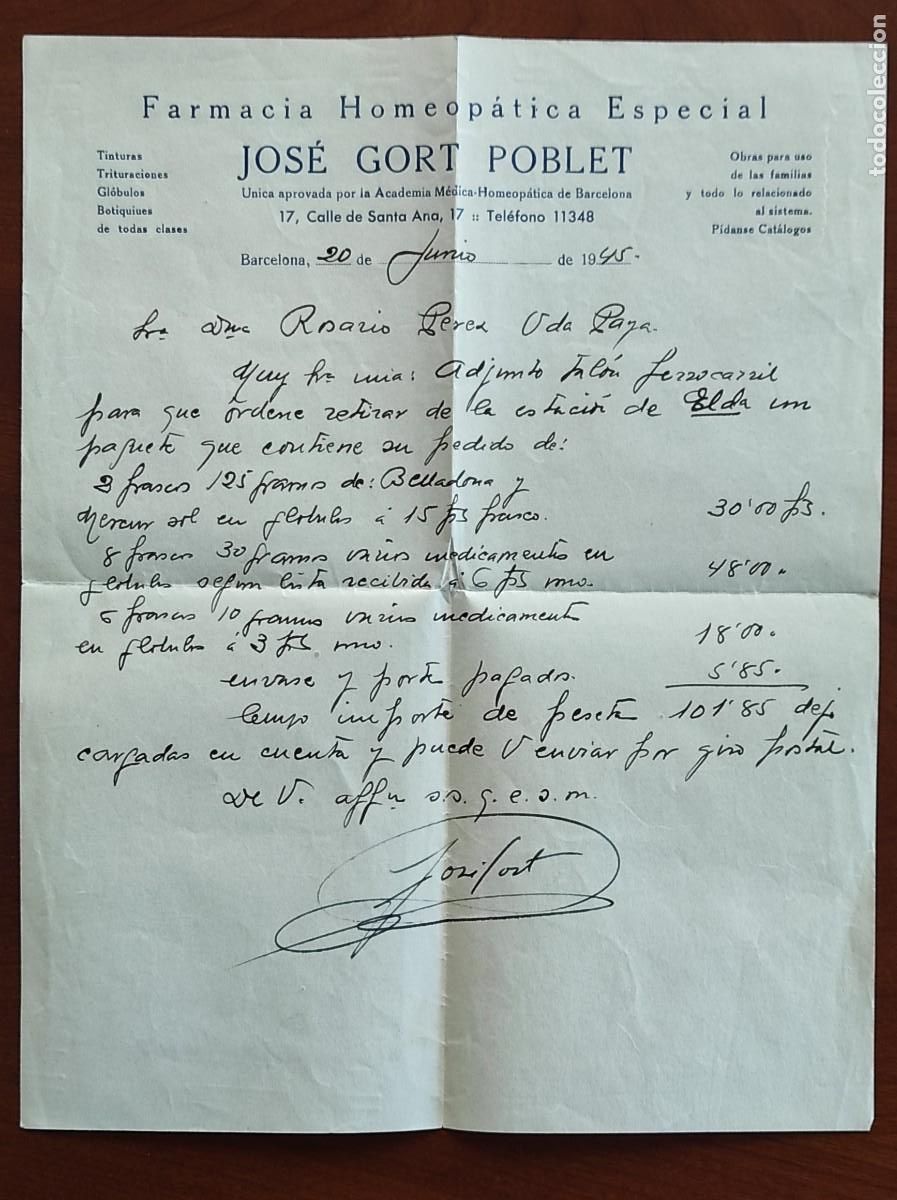 Farmacia Homeopática Especial
JOSÉ GORT POBLET
Unica aprovada por la Academia Médica-Homeopática de Barcelona
17, Calle de Santa Ana, 17 :: Teléfono 11348
Tinturas
Trituraciones
Glóbulos
Botiquiues
de todas clases
Obras para uso
de las familias
y todo lo relacionado
al sistema.
Pídanse Catálogos
Barcelona, 20 de Junio de 1945.
Sra Dña Rosario Perez Vda Paya.
Muy Sra mia: Adjunto talón ferrocarril
para que órdene retirar de la estación de Elda un
paquete que contiene su pedido de:
2 frascos 125 gramos de: Belladona y
Mercur sol en globulos á 15 pts frasco. 30'00 pts.
8 frascos 30 gramos varios medicamentos en
globulos segun lista recibida á 6 pts uno. 48'00 "
6 frascos 10 gramos varios medicamentos
en globulos á 3 pts uno. 18'00.
envase y porte pagados. 5'85.
Cuyo importe de pesetas 101'85 dejo
cargadas en cuenta y puede V enviar por giro postal.
De V. affmo s.s. q. e. s. m.
José Gort
todocoleccion